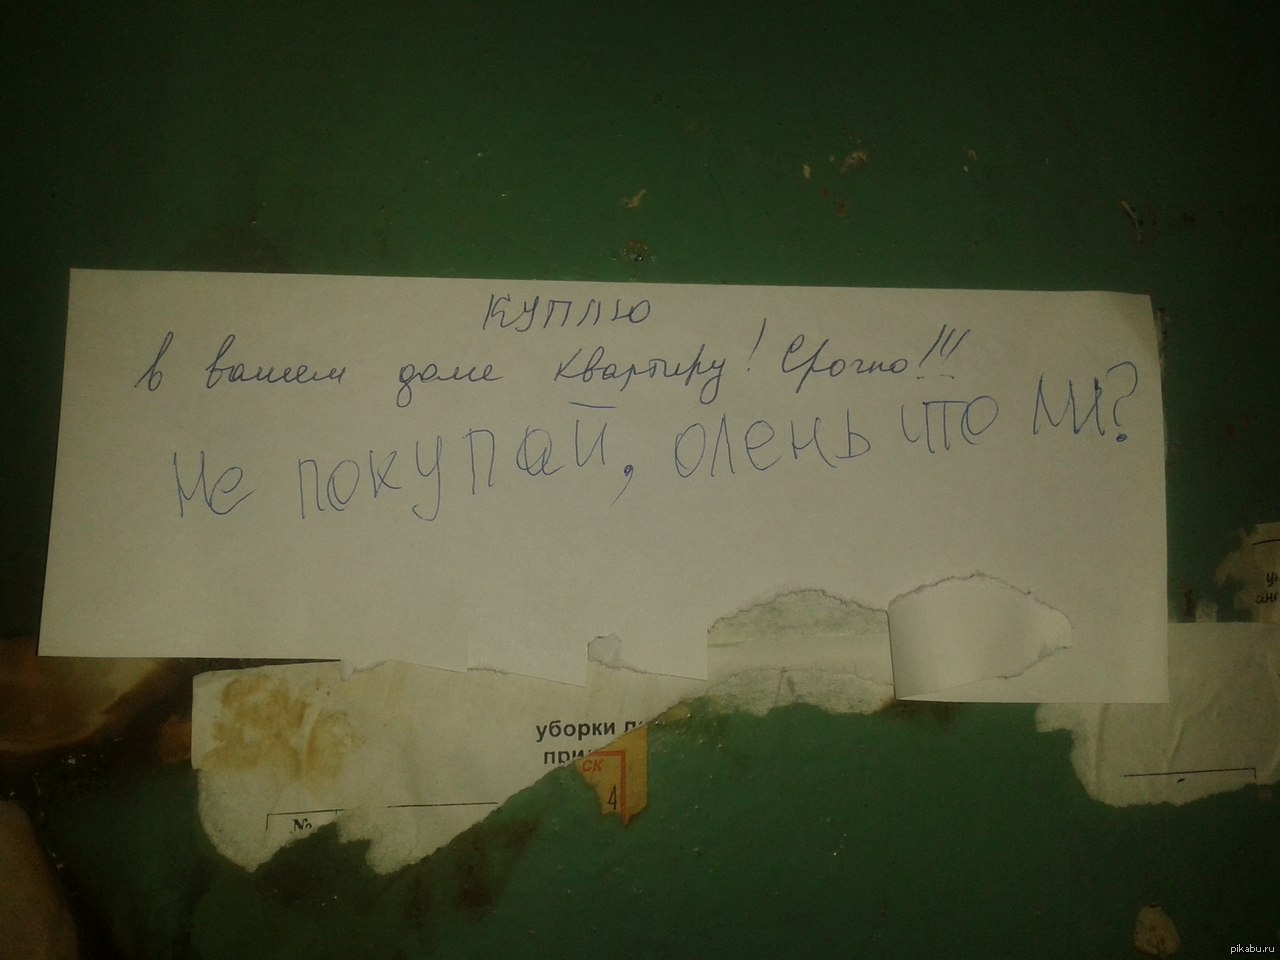 КУПЛЮ
в вашем доме квартиру! Срочно!!!
Не покупай, олень что ли?
уборки
при
ск
4
№
pikabu.ru